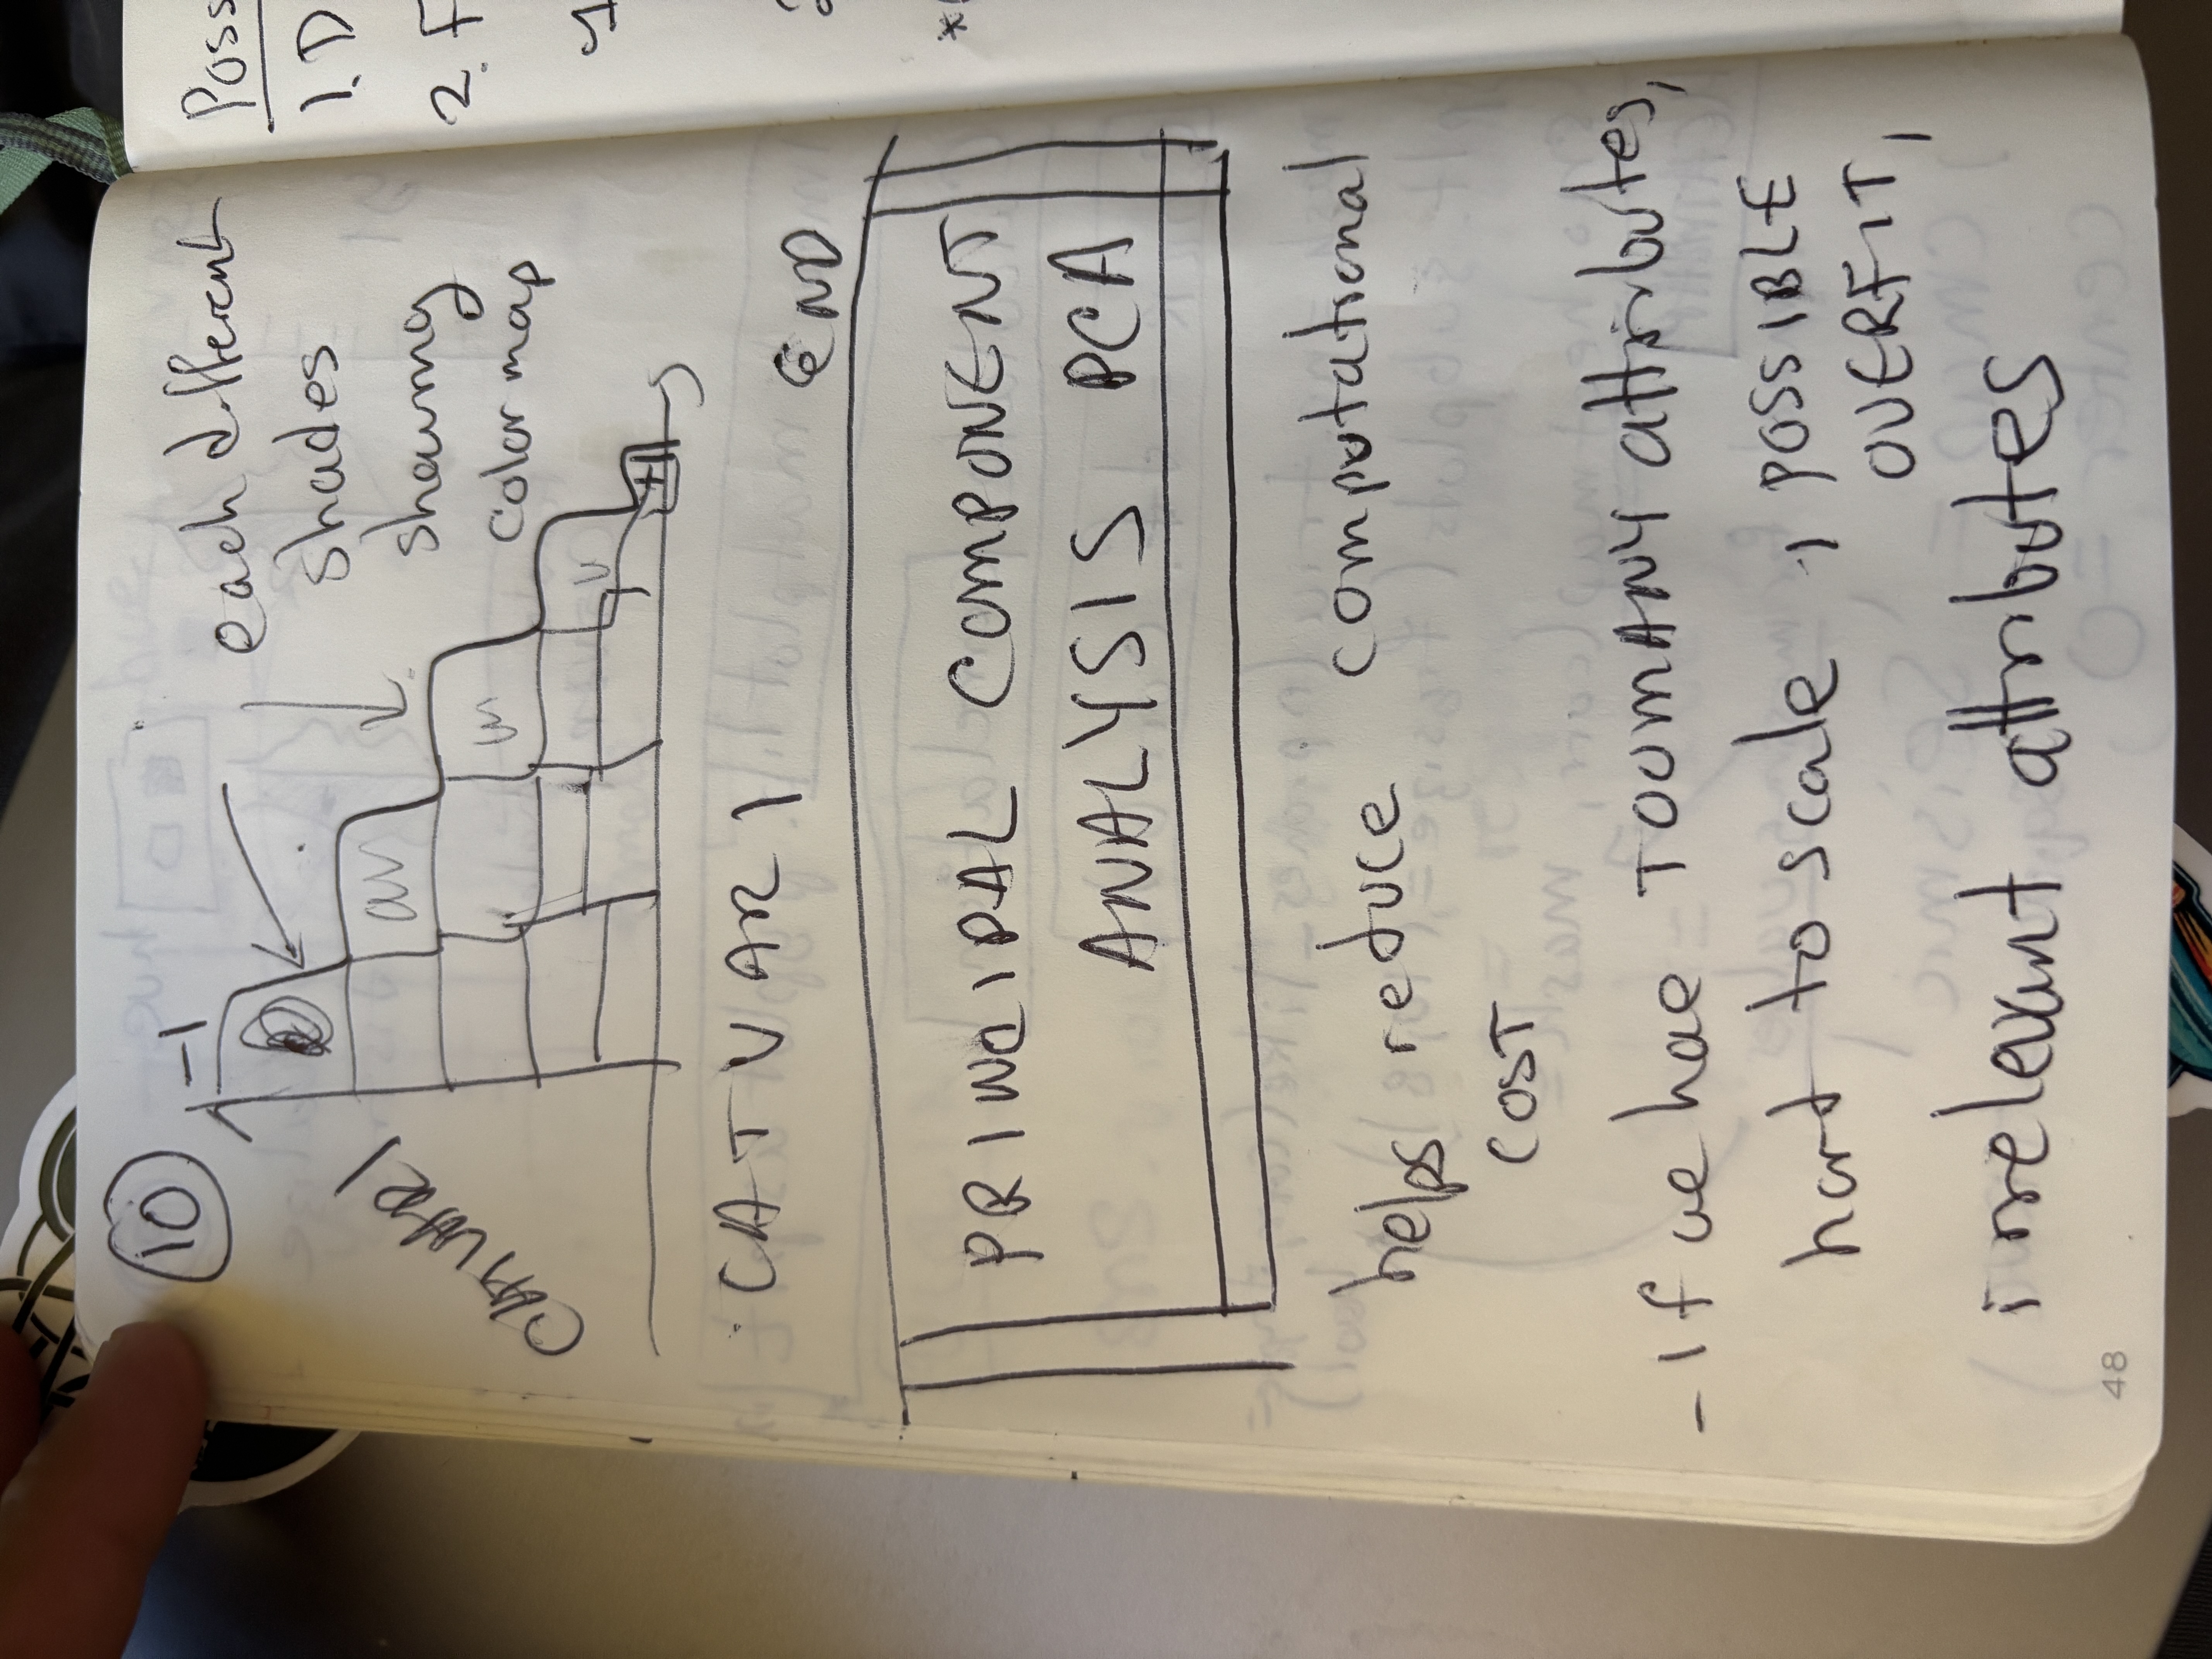 10
-1
each different
shades
showing
color map
CATVAR 1
+1
CATVAR 1
END
PRINCIPAL COMPONENT
ANALYSIS PCA
helps reduce computational
COST
- If we hae TOOMANY attributes,
hard to scale , POSSIBLE
OVERFIT,
irrelevant attributes
48
Poss
1. D
2. F